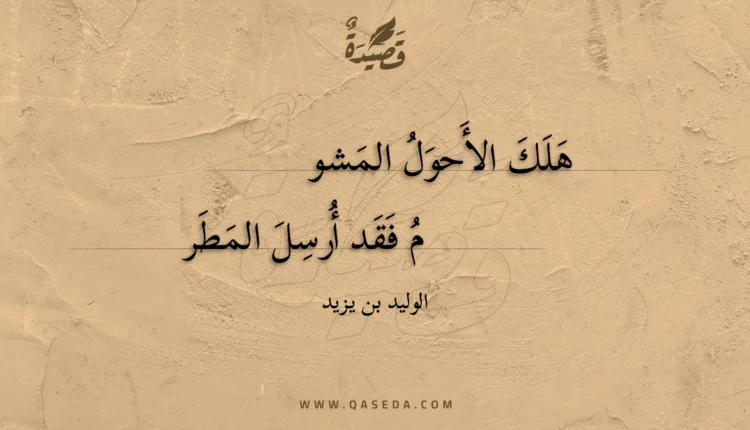 قَصِيْدَةٌ
هَلَكَ الأَحوَلُ المَشو
مُ فَقَد أُرسِلَ المَطَر
الوليد بن يزيد
WWW.QASEDA.COM